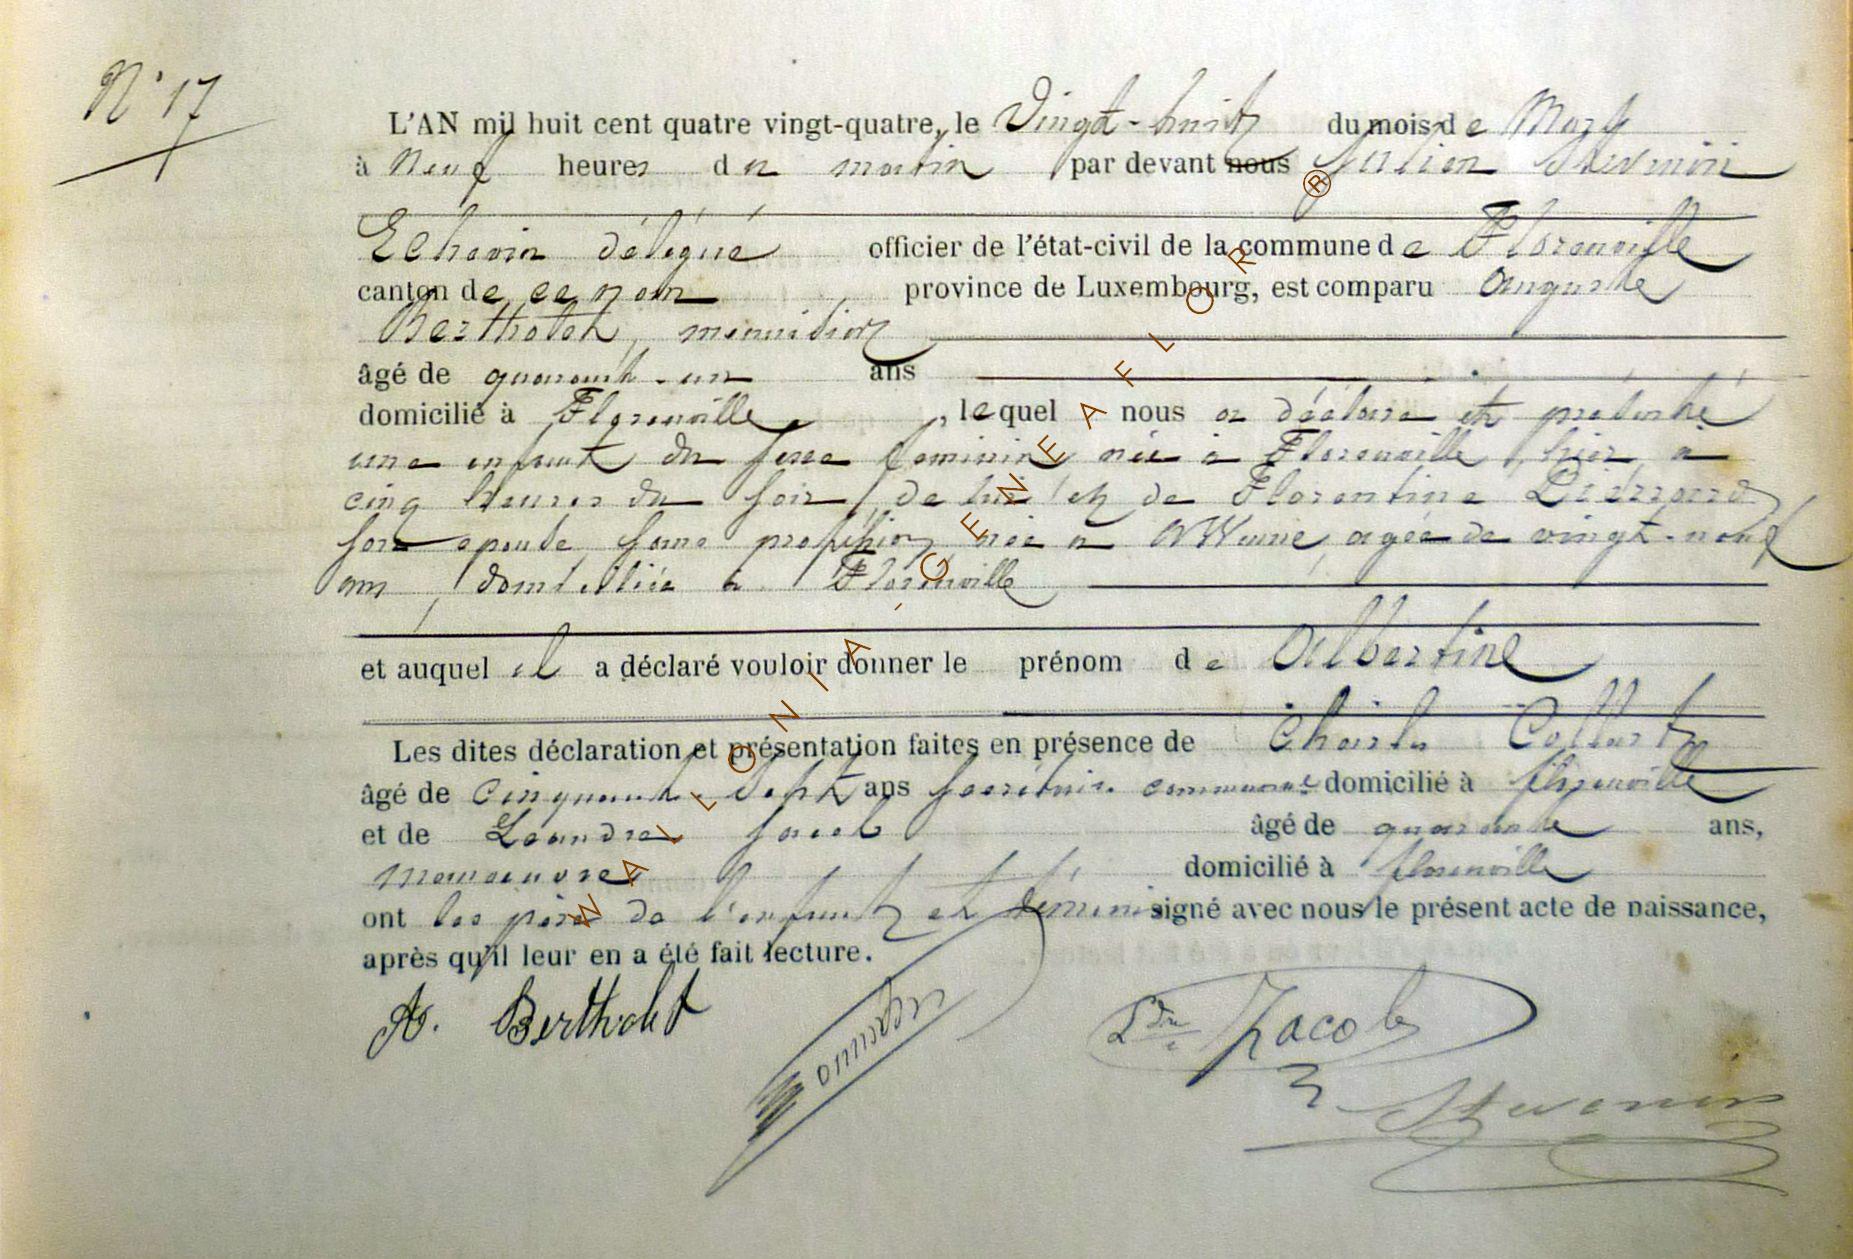 N° 17
L'AN mil huit cent quatre vingt-quatre, le Vingt-huit du mois de Mars
à neuf heures du matin par devant nous Julien Stevenin
Echevin délégué officier de l'état-civil de la commune de Florenville
canton de ce nom province de Luxembourg, est comparu Auguste
Bertholet, menuisier
âgé de quarante-un ans
domicilié à Florenville, lequel nous a déclaré et présenté
une enfant du sexe féminin née à Florenville, hier à
cinq heures du soir, de lui et de Florentine
son épouse, sans profession, née à âgée de vingt-neuf
ans, domiciliée à Florenville
et auquel il a déclaré vouloir donner le prénom de Albertine
Les dites déclaration et présentation faites en présence de Charles Collart
âgé de cinquante-sept ans secrétaire communal domicilié à florenville
et de Léandre Jacob âgé de quarante ans,
manoeuvre domicilié à florenville
ont les père de l'enfant et témoins signé avec nous le présent acte de naissance,
après qu'il leur en a été fait lecture.
A. Bertholet
Ldre Jacob
J Stevenin
WALLONIA - GENEAFLOR ®